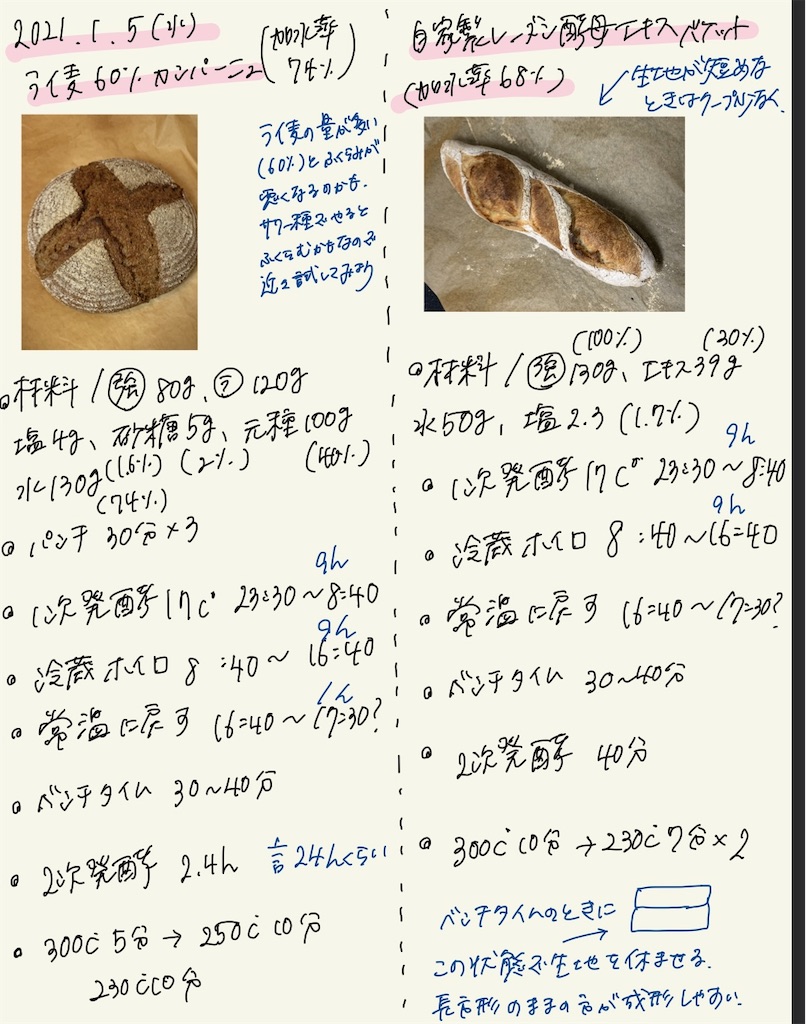 2021.1.5(火)
ライ麦60%カンパーニュ(加水率74%)
ライ麦の量が多い
(60%)とふくらみが
悪くなるのかも.
サワー種でやると
ふくらむかもなので
近々試してみよう
○材料/(強)80g、(ラ)120g
塩4g、砂糖5g、元種100g
(1.6%) (2%) (40%)
水130g
(74%)
○パンチ 30分×3
9h
○1次発酵17C° 23:30~8:40
9h
○冷蔵ホイロ 8:40~16:40
1h
○常温に戻す 16:40~17:30?
○ベンチタイム 30~40分
○2次発酵 2.4h 計24hくらい
○300℃ 5分→250℃ 10分
230℃10分
自家製レーズン酵母エキスバゲット
(加水率68%)
生地が短めな
ときはクープ少なく
(100%) (30%)
○材料/(強)130g、エキス39g
水50g、塩2.3(1.7%)
9h
○1次発酵17C° 23:30~8:40
9h
○冷蔵ホイロ 8:40~16:40
○常温に戻す 16:40~17:30?
○ベンチタイム 30~40分
○2次発酵 40分
○300℃10分→230℃7分×2
ベンチタイムのときに
この状態で生地を休ませる.
長方形のままの方が成形しやすい.